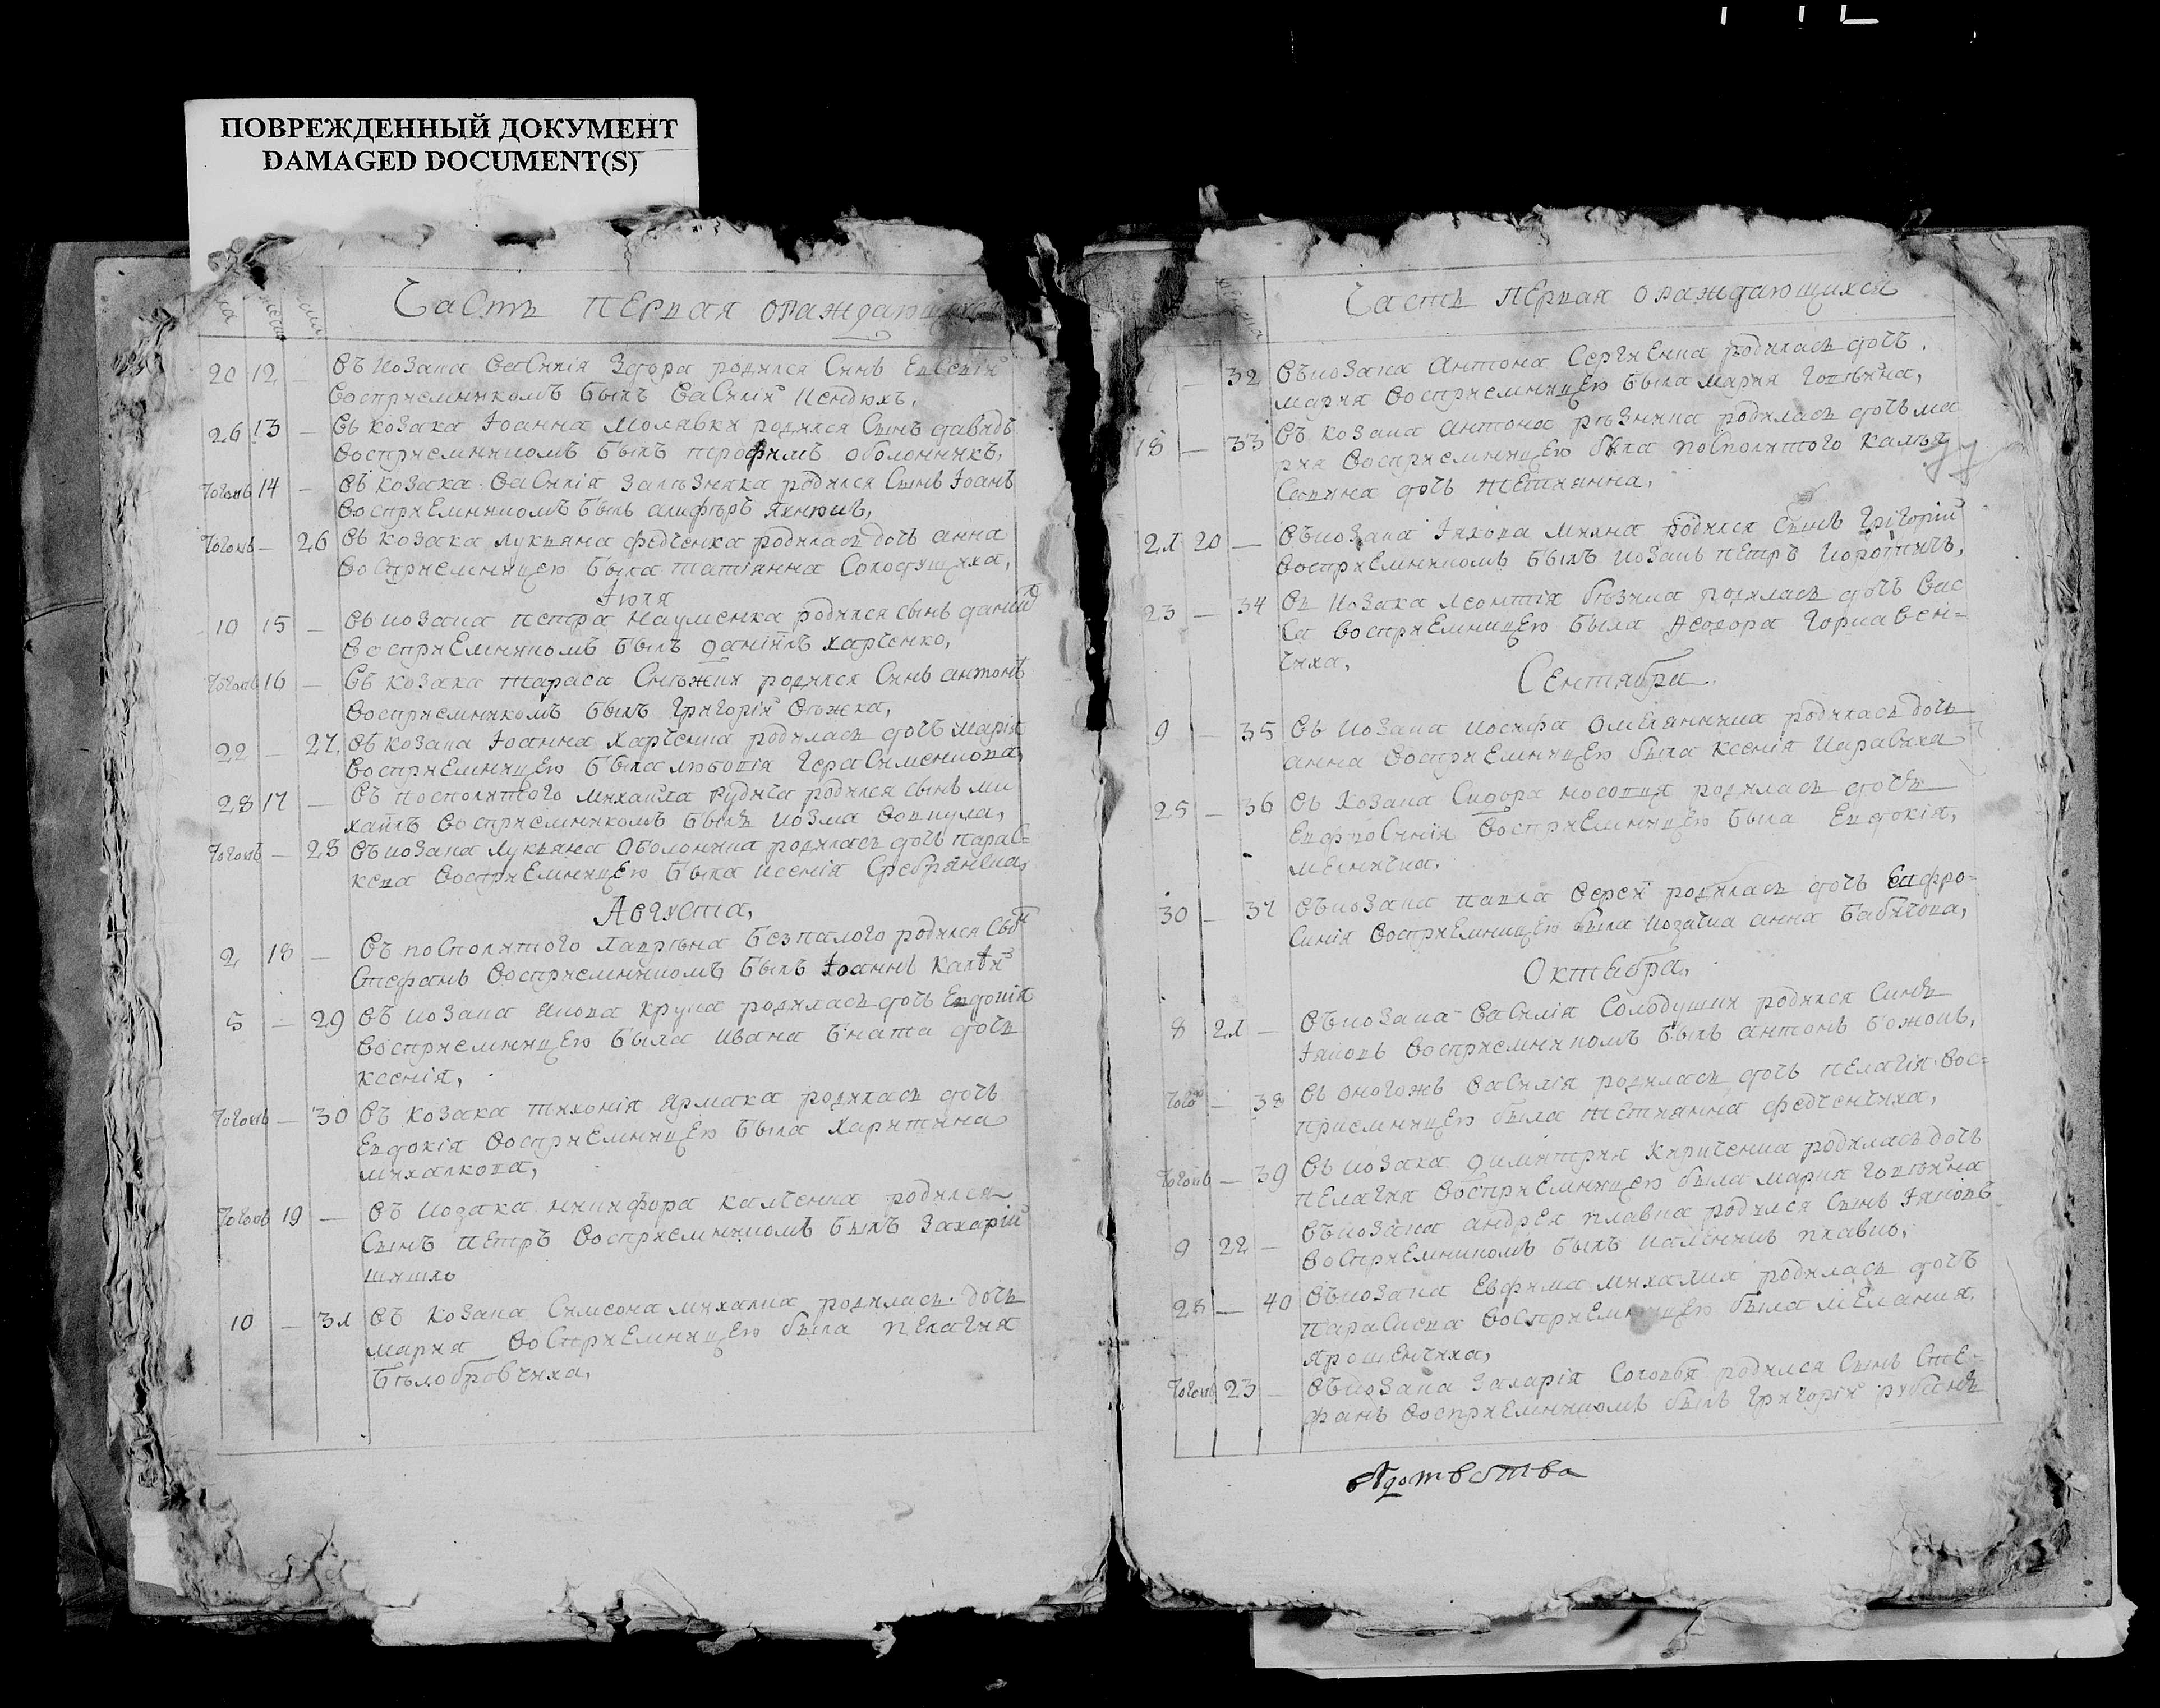 ПОВРЕЖДЕННЫЙ ДОКУМЕНТ
DAMAGED DOCUMENT(S)
Часть первая о раждающихся
20 12 — Въ козака Василія Згора родился Синъ Евсевій
Восприемникомъ былъ Василій Кендюхъ,
26 13 — Въ козака Іоанна Молявки родился Сынъ давидъ
Восприемникомъ былъ перфилъ оболонникъ,
тогожъ 14 — Въ козака Василія Залѣзняка родился Сынъ Іоанъ
Восприемникомъ былъ
тогожъ — 26 Въ козака лукьяна федченка родилась дочь анна
Восприемницею была татіянна Солодущиха,
Іюля
10 15 — Въ козака петра Науменка родился сынъ даніил
Восприемникомъ былъ даніилъ харченко,
тогожъ 16 — Въ козака тараса Снѣжки родился Синъ антонъ
Восприемникомъ былъ григорій Вѣжка,
22 — 27 Въ козака Іоанна Харченка родилась дочъ марія
Восприемницею была любовія Герасименкова,
28 17 — Въ посполитого михаила Рудича родился сынъ ми
хаилъ Восприемникомъ былъ козма Вовкула,
тогожъ — 28 Въ козака лукьяна Оболонника родилась дочъ парас-
кева Восприемницею была ксенія Сребрянска,
Августа,
2 18 — Въ посполитого лаврѣна безпалого родился Сын
Стефанъ Восприемникомъ былъ Іоаннъ
5 — 29 Въ козака якова крука родилась дочъ Евдокія
Восприемницею была ивана Гната дочь
ксенія,
тогожъ — 30 Въ козака тихонія Ярмака родилась дочъ
Евдокія Восприемницею была Харитина
михалкова,
тогожъ 19 — Въ козака никифора калченка родился
Сынъ петръ Восприемникомъ былъ Захарій
шишло
10 — 31 Въ козака Симеона михалка родилась дочь
мария Восприемницею была пелагия
бѣлобровчиха,
Часть первая о раждающихся
— 32 Въ козака Антона Сергиенка родилась дочъ
мария Восприемницею была мария Голвѣна,
18 — 33 Въ козака антона рѣзника родилась дочь ма
рия Восприемницею была посполитого
Савина дочь тетиянна,
21 20 — Въ козака Іякова михна родился Сынъ Григорій
Восприемникомъ былъ козакъ петръ коротичъ,
23 — 34 Въ козака леонтія бѣзила родилась дочъ Вас
са Восприемницею была Феодора Горкавен-
чиха,
Сентября
9 — 35 Въ козака иосифа Омелянника родилась дочь
анна Восприемницею была ксенія каравика
25 — 36 Въ козака Сидора носовця родилась дочь
Евфросинія Восприемницею была Евдокія,
мелничка.
30 — 37 Въ козака павла Верей родилась дочь Евфро-
синія Восприемницею была козачка анна бабичова,
Октября.
8 21 — Въ козака Василія Солодушки родился Синъ
Іяковъ Восприемникомъ былъ антонъ божокъ,
того — 38 Въ оногожъ Василія родилась дочъ пелагія Вос-
приемницею была тетиянна федченчиха,
тогожъ — 39 Въ козака димитрия Кириченка родилась дочь
пелагия Восприемницею была мария Голвѣна
9 22 — Въ козака андрея плавка родился Сынъ Іяковъ
Восприемникомъ былъ плавко,
28 — 40 Въ козака Евфима михалка родилась дочь
параскева Восприемницею была меланія,
Ярошенчиха,
тогожъ 23 — Въ козака Захарія Соловья родился Сынъ Сте-
фанъ Восприемникомъ былъ Григорій рубанъ